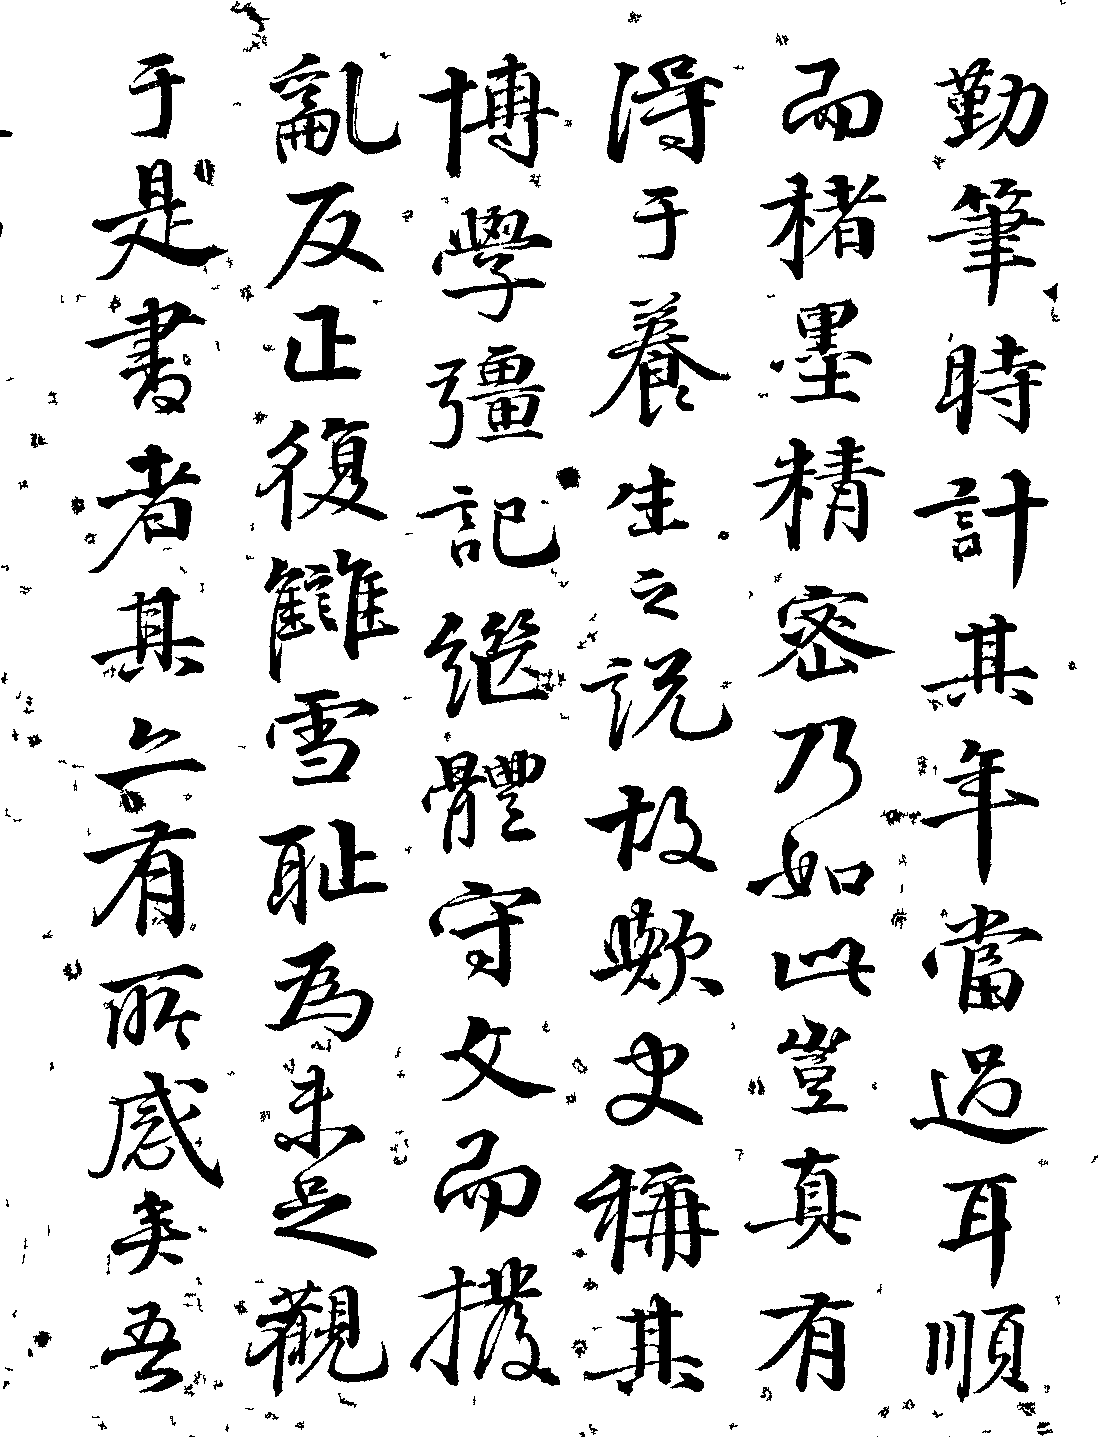 勤筆時計其年當過耳順
而楮墨精密乃如此豈真有
得于養生之說故歟史稱其
博學彊記繼體守文而撥
亂反正復讎雪恥為未足觀
于是書者其亦有所感矣吾